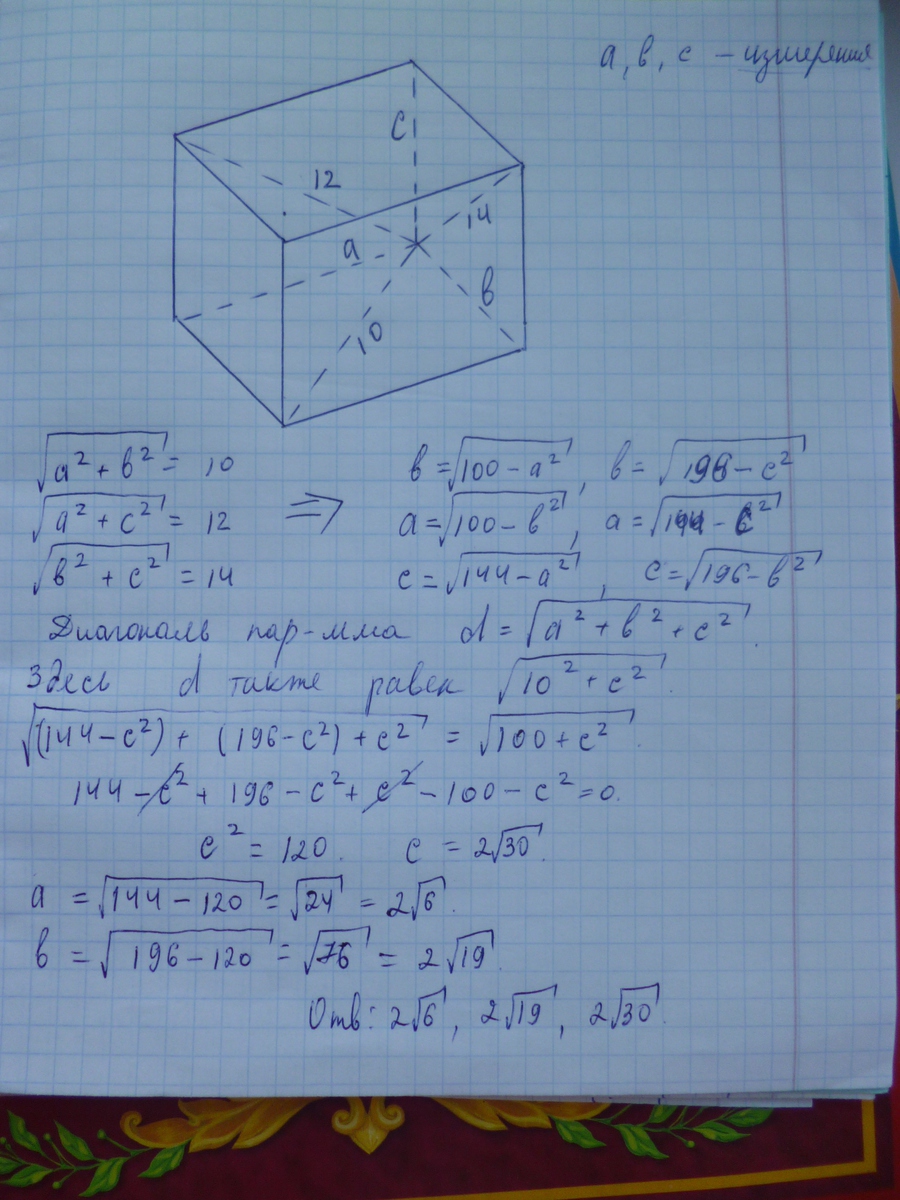 а, в, с – измерения
C
12
14
a
в
10
√(a² + в²) = 10
√(a² + c²) = 12
√(в² + c²) = 14
⇒
в = √(100 – a²), в = √(196 – c²)
a = √(100 – в²), a = √(144 – c²)
c = √(144 – a²), c = √(196 – в²)
Диагональ пар-мма d = √(a² + в² + c²)
Здесь d также равен √(10² + c²).
√((144 – c²) + (196 – c²) + c²) = √(100 + c²).
144 – c² + 196 – c² + c² – 100 – c² = 0.
c² = 120. c = 2√30.
a = √(144 – 120) = √24 = 2√6.
в = √(196 – 120) = √76 = 2√19.
Отв: 2√6, 2√19, 2√30.